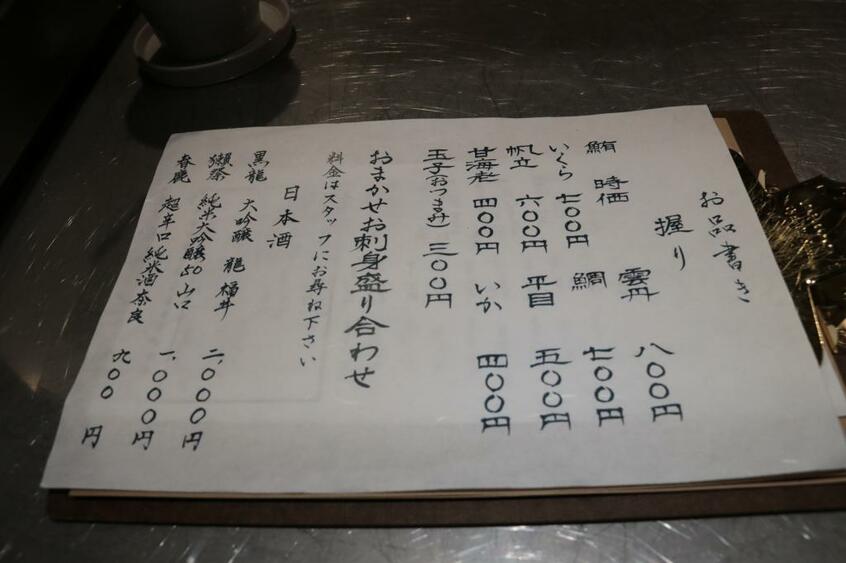 お品書き
握り
鮪 時価 雲丹 八〇〇円
いくら 七〇〇円 鯛 七〇〇円
帆立 六〇〇円 平目 五〇〇円
甘海老 四〇〇円 いか 四〇〇円
玉子(おつまみ) 三〇〇円
おまかせお刺身盛り合わせ
料金はスタッフにお尋ね下さい
日本酒
黒龍 大吟醸 龍 福井 二、〇〇〇円
獺祭 純米大吟醸50 山口 一、〇〇〇円
春鹿 超辛口 純米酒 奈良 九〇〇円